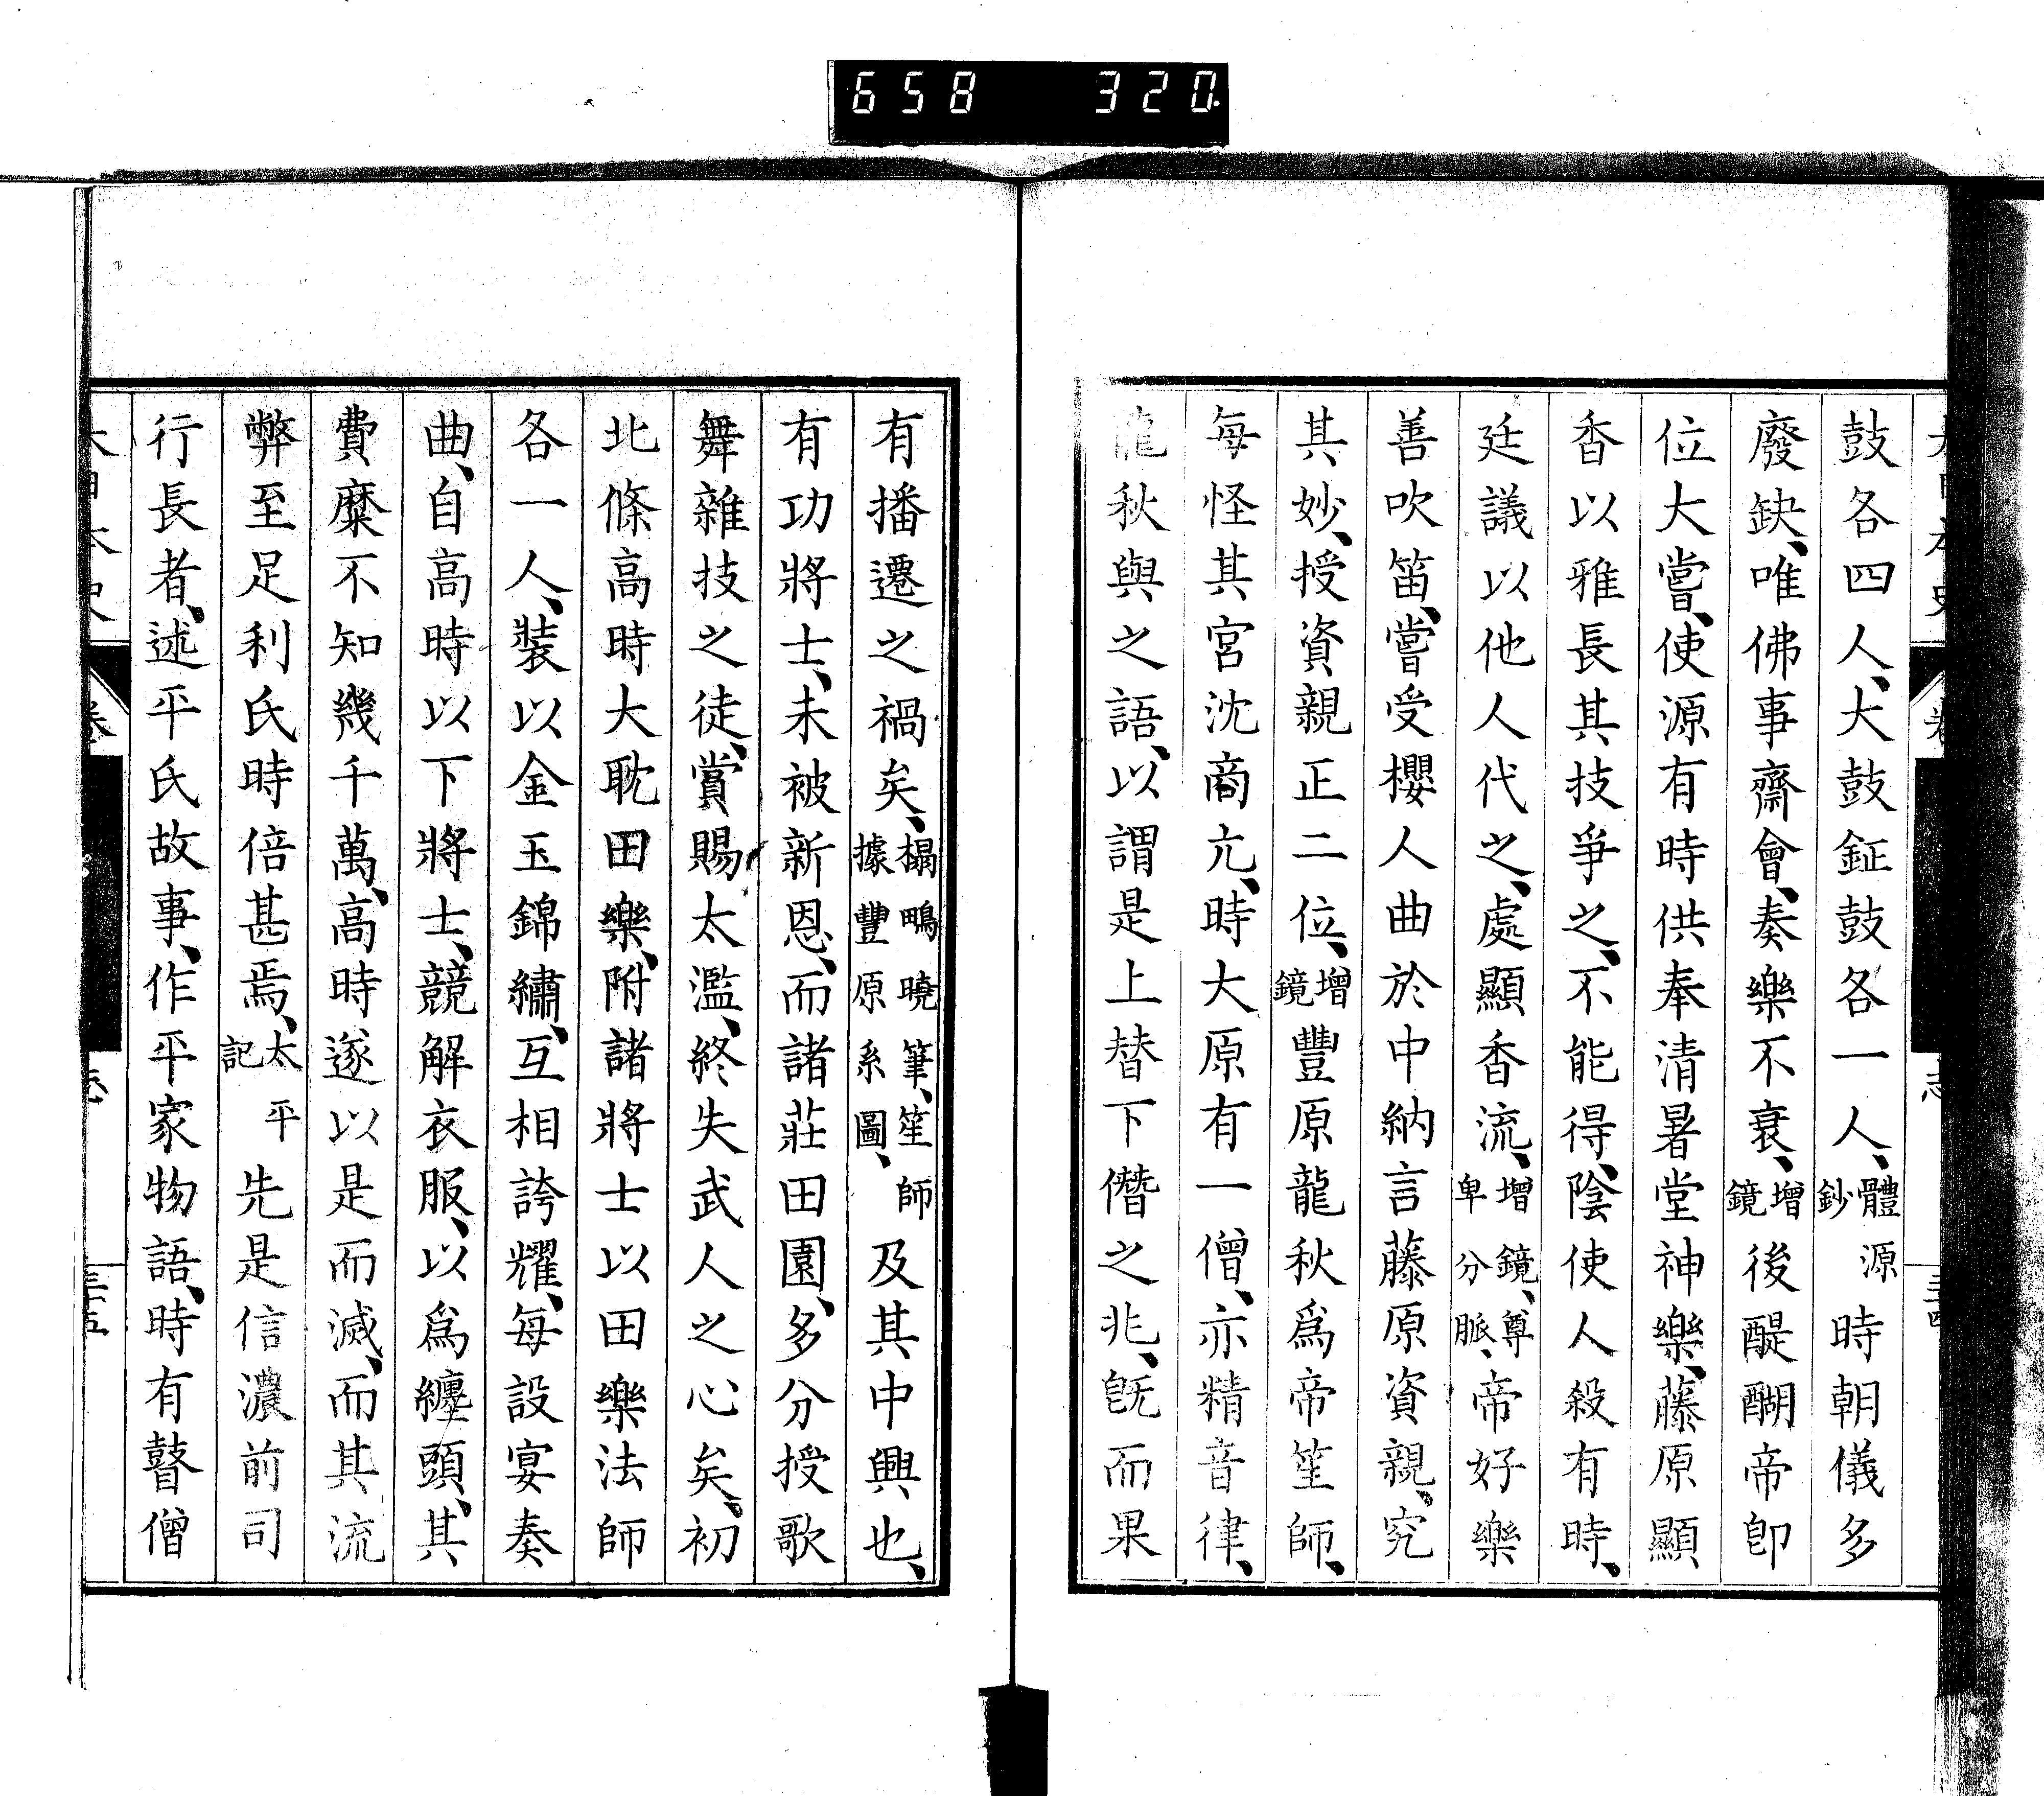 658 320
鼓各四人、大鼓鉦鼓各一人、體源鈔時朝儀多
廢缺、唯佛事齋會、奏樂不衰、增鏡後醍醐帝卽
位大嘗、使源有時供奉清暑堂神樂、藤原顯
香以雅長其技爭之、不能得、陰使人殺有時、
廷議以他人代之、處顯香流、增鏡、尊卑分脈、帝好樂
善吹笛、嘗受櫻人曲於中納言藤原資親、究
其妙、授資親正二位、增鏡豐原龍秋爲帝笙師、
每怪其宮沈商亢、時大原有一僧、亦精音律、
龍秋與之語、以謂是上替下僭之兆、旣而果
有播遷之禍矣、榻鴫曉筆、笙師據豐原系圖、及其中興也、
有功將士、未被新恩、而諸莊田園、多分授歌
舞雜技之徒、賞賜太濫、終失武人之心矣、初
北條高時大耽田樂、附諸將士以田樂法師
各一人、裝以金玉錦繡、互相誇耀、每設宴奏
曲、自高時以下將士、競解衣服、以爲纏頭、其
費糜不知幾千萬、高時遂以是而滅、而其流
弊至足利氏時倍甚焉、太平記先是信濃前司
行長者、述平氏故事、作平家物語、時有瞽僧
大日本史 卷 志 三十五